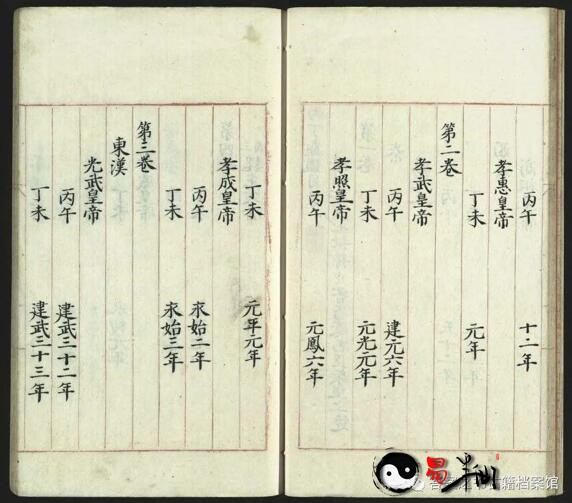 丙午 十二年
孝惠皇帝
丁未 元年
第二卷
孝武皇帝
丙午 建元六年
丁未 元光元年
孝照皇帝
丙午 元鳳六年
丁未 元年元年
孝成皇帝
丙午 永始二年
丁未 永始三年
第三卷
東漢
光武皇帝
丙午 建武二十二年
丁未 建武二十三年
易
籍档案馆